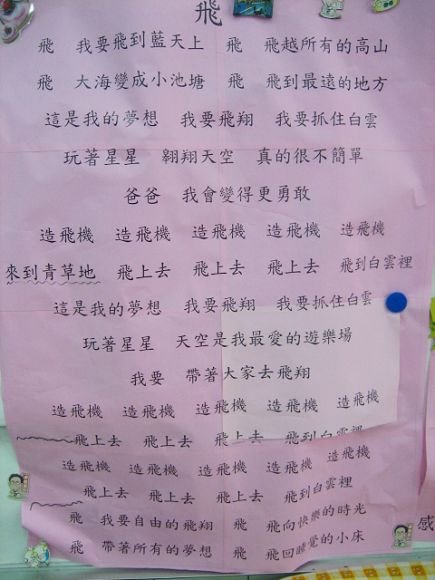 飛
飛 我要飛到藍天上 飛 飛越所有的高山
飛 大海變成小池塘 飛 飛到最遠的地方
這是我的夢想 我要飛翔 我要抓住白雲
玩著星星 翱翔天空 真的很不簡單
爸爸 我會變得更勇敢
造飛機 造飛機 造飛機 造飛機 造飛機
來到青草地 飛上去 飛上去 飛上去 飛到白雲裡
這是我的夢想 我要飛翔 我要抓住白雲
玩著星星 天空是我最愛的遊樂場
我要 帶著大家去飛翔
造飛機 造飛機 造飛機 造飛機 造飛機
飛上去 飛上去 飛上去 飛到白雲裡
造飛機 造飛機 造飛機 造飛機 造飛機
飛上去 飛上去 飛上去 飛到白雲裡
飛 我要自由的飛翔 飛 飛向快樂的時光
飛 帶著所有的夢想 飛 飛回睡覺的小床
感